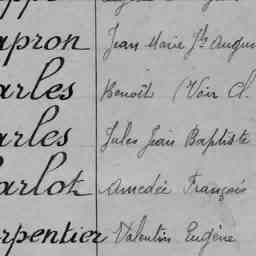 apron Jean Marie Jh Augus
arles Benoît (Voir d.
arles Jules Jean Baptiste
arlot Amedée François
arpentier Valentin Eugène